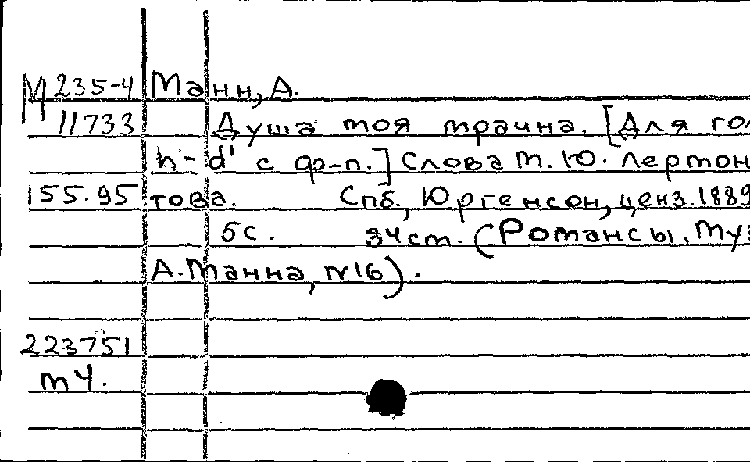 М 235-4 Манн, А.
11733 Душа моя мрачна. [Для гол
h-d' с ф-п.] Слова М. Ю. Лермон
155.95 това. Спб., Юргенсон, ценз. 1889
5с. 34см. (Романсы. Муз
А. Манна, №16).
223751
м4.